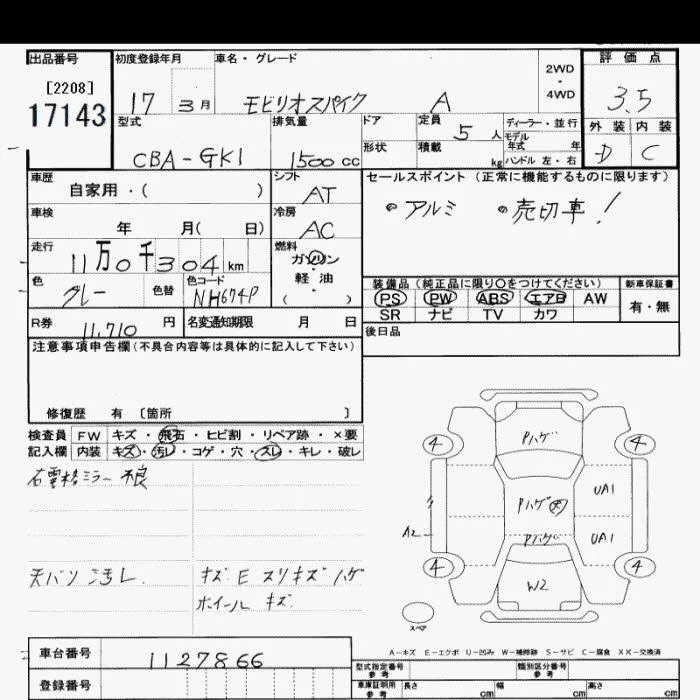 出品番号 初度登録年月 車名・グレード 2WD・4WD 評価点
[2208]
17143
17 3月 モビリオスパイク A 3.5
型式 排気量 ドア 定員 5人 ディーラー・並行 外装 内装
モデル年式 年
CBA-GK1 1500cc 形状 積載 kg ハンドル 左・右 D C
車歴 シフト セールスポイント (正常に機能するものに限ります)
自家用・( ) AT
アルミ 売切車!
車検 冷房
年 月( 日) AC
走行 燃料
11万0千304km ガソリン・軽油・( )
色 色替 色コード 装備品(純正品に限り○をつけてください) 新車保証書
グレー NH674P PS PW ABS エアB AW 有・無
SR ナビ TV カワ
R券 11,710円 名変通知期限 月 日 後日品
注意事項申告欄(不具合内容等は具体的に記入して下さい)
修復歴 有 [箇所 ]
検査員 FW キズ・飛石・ヒビ割・リペア跡・×要
記入欄 内装 キズ・汚レ・コゲ・穴・スレ・キレ・破レ
右電格ミラー不良
天バリ汚レ
キズ E スリキズ ハゲ
ホイールキズ
Pハゲ
4 4
Pハゲ 大 UA1
A2 Pハゲ UA1
4 4
W2
スペア
A-キズ E-エクボ U-凹み W-補修跡 S-サビ C-腐食 XX-交換済
車台番号 1127866
型式指定番号 参考 類別区分番号 参考
登録番号
車庫証明用 参考 長さ cm 幅 cm 高さ cm